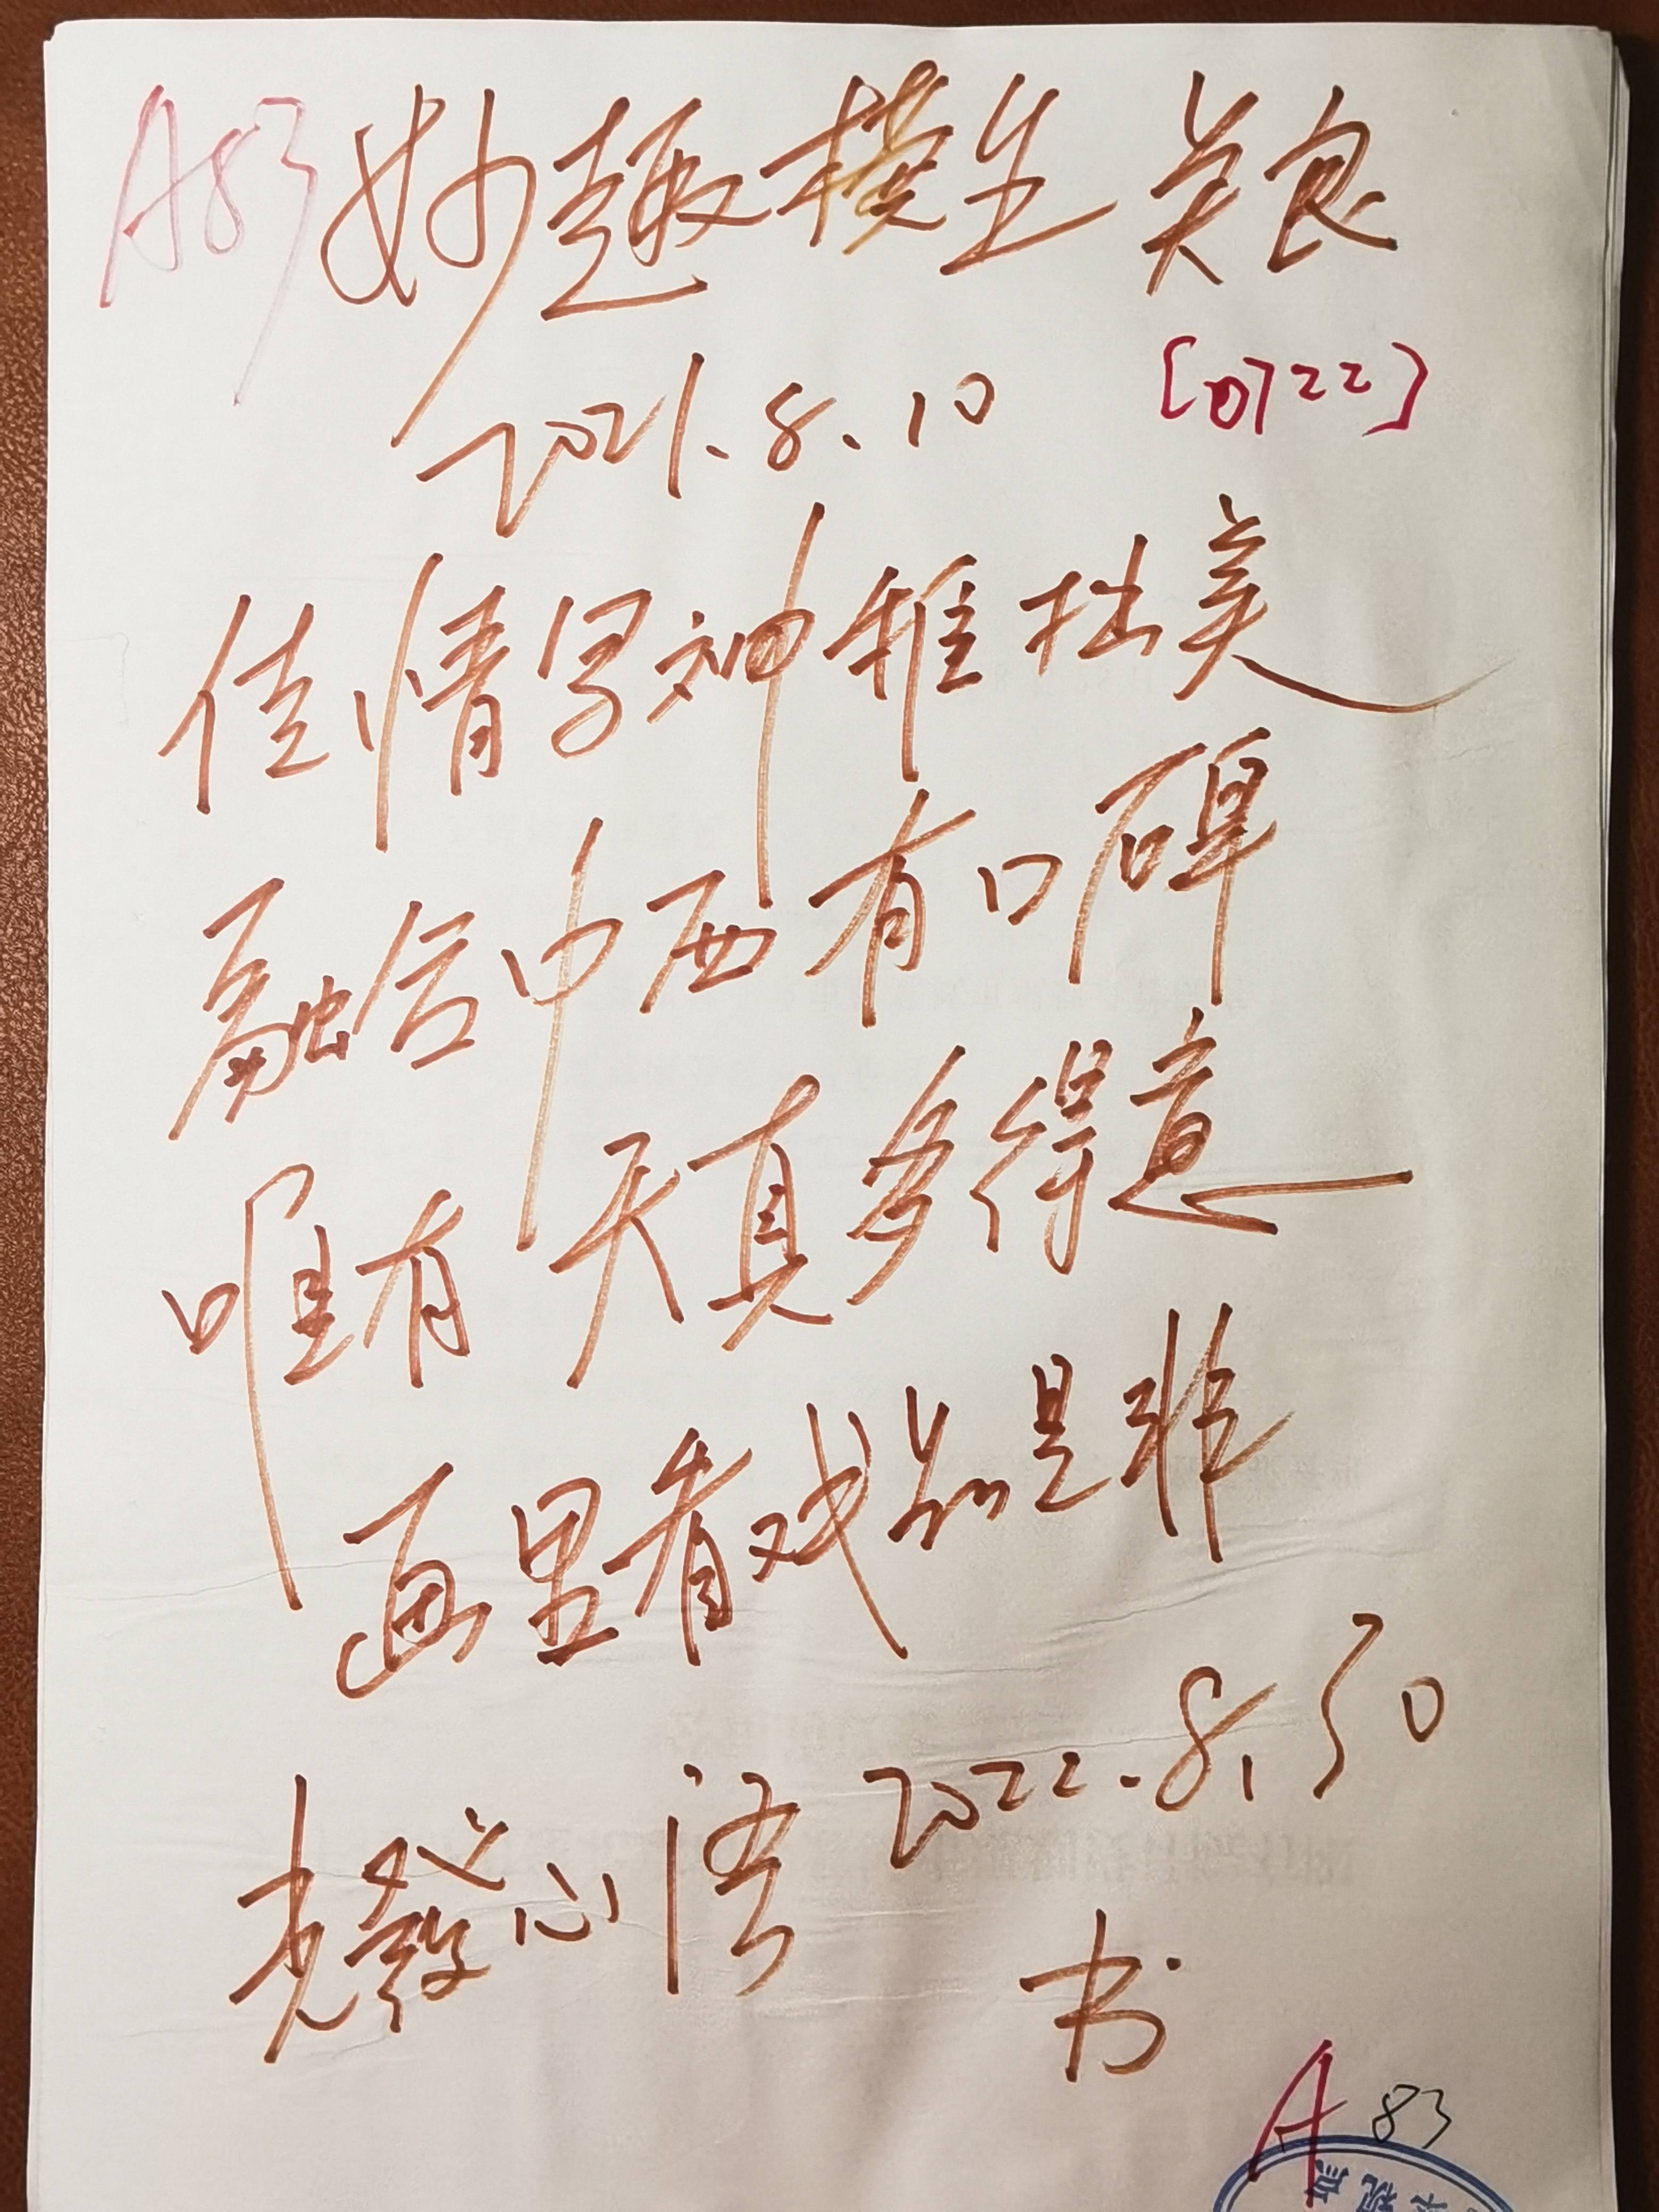 A83 妙趣横生 关良
2021.8.10 [0722]
佳情写神稚拙美
融合中西有口碑
唯有天真多得意
画里看戏品是非
心语 2022.8.30
书
A 83